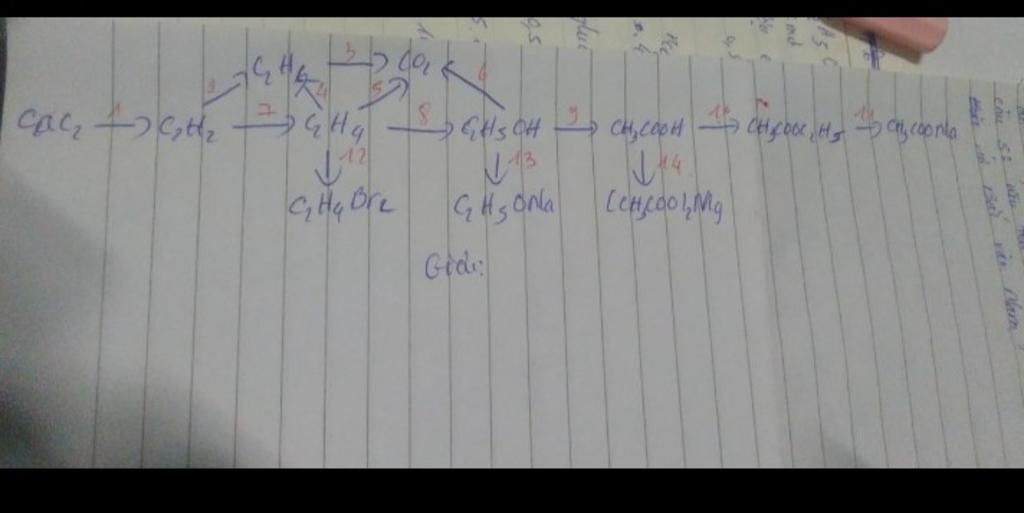 C2H6 3 CO2
2 4 5 6
CaC2 1 C2H2 7 C2H4 8 C2H5OH 9 CH3COOH 10 CH3COOC2H5 11 CH3COONa
12 13 14
C2H4Br2 C2H5ONa (CH3COO)2Mg
Giải: